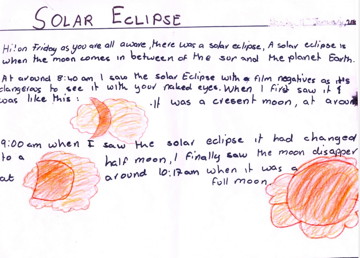 SOLAR ECLIPSE
Hi! on Friday as you are all aware, there was a solar eclipse, A solar eclipse is
when the moon comes in between of the sur and the planet Earth.
At around 8:40 am, I saw the solar Eclipse with a film negatives as it's
dangerous to see it with your naked eyes. When I first saw it I
was like this: It was a cresent moon, at around
9:00 am when I saw the solar eclipse it had changed
to a half moon, I finally saw the moon disapper
at around 10:17am when it was a
full moon